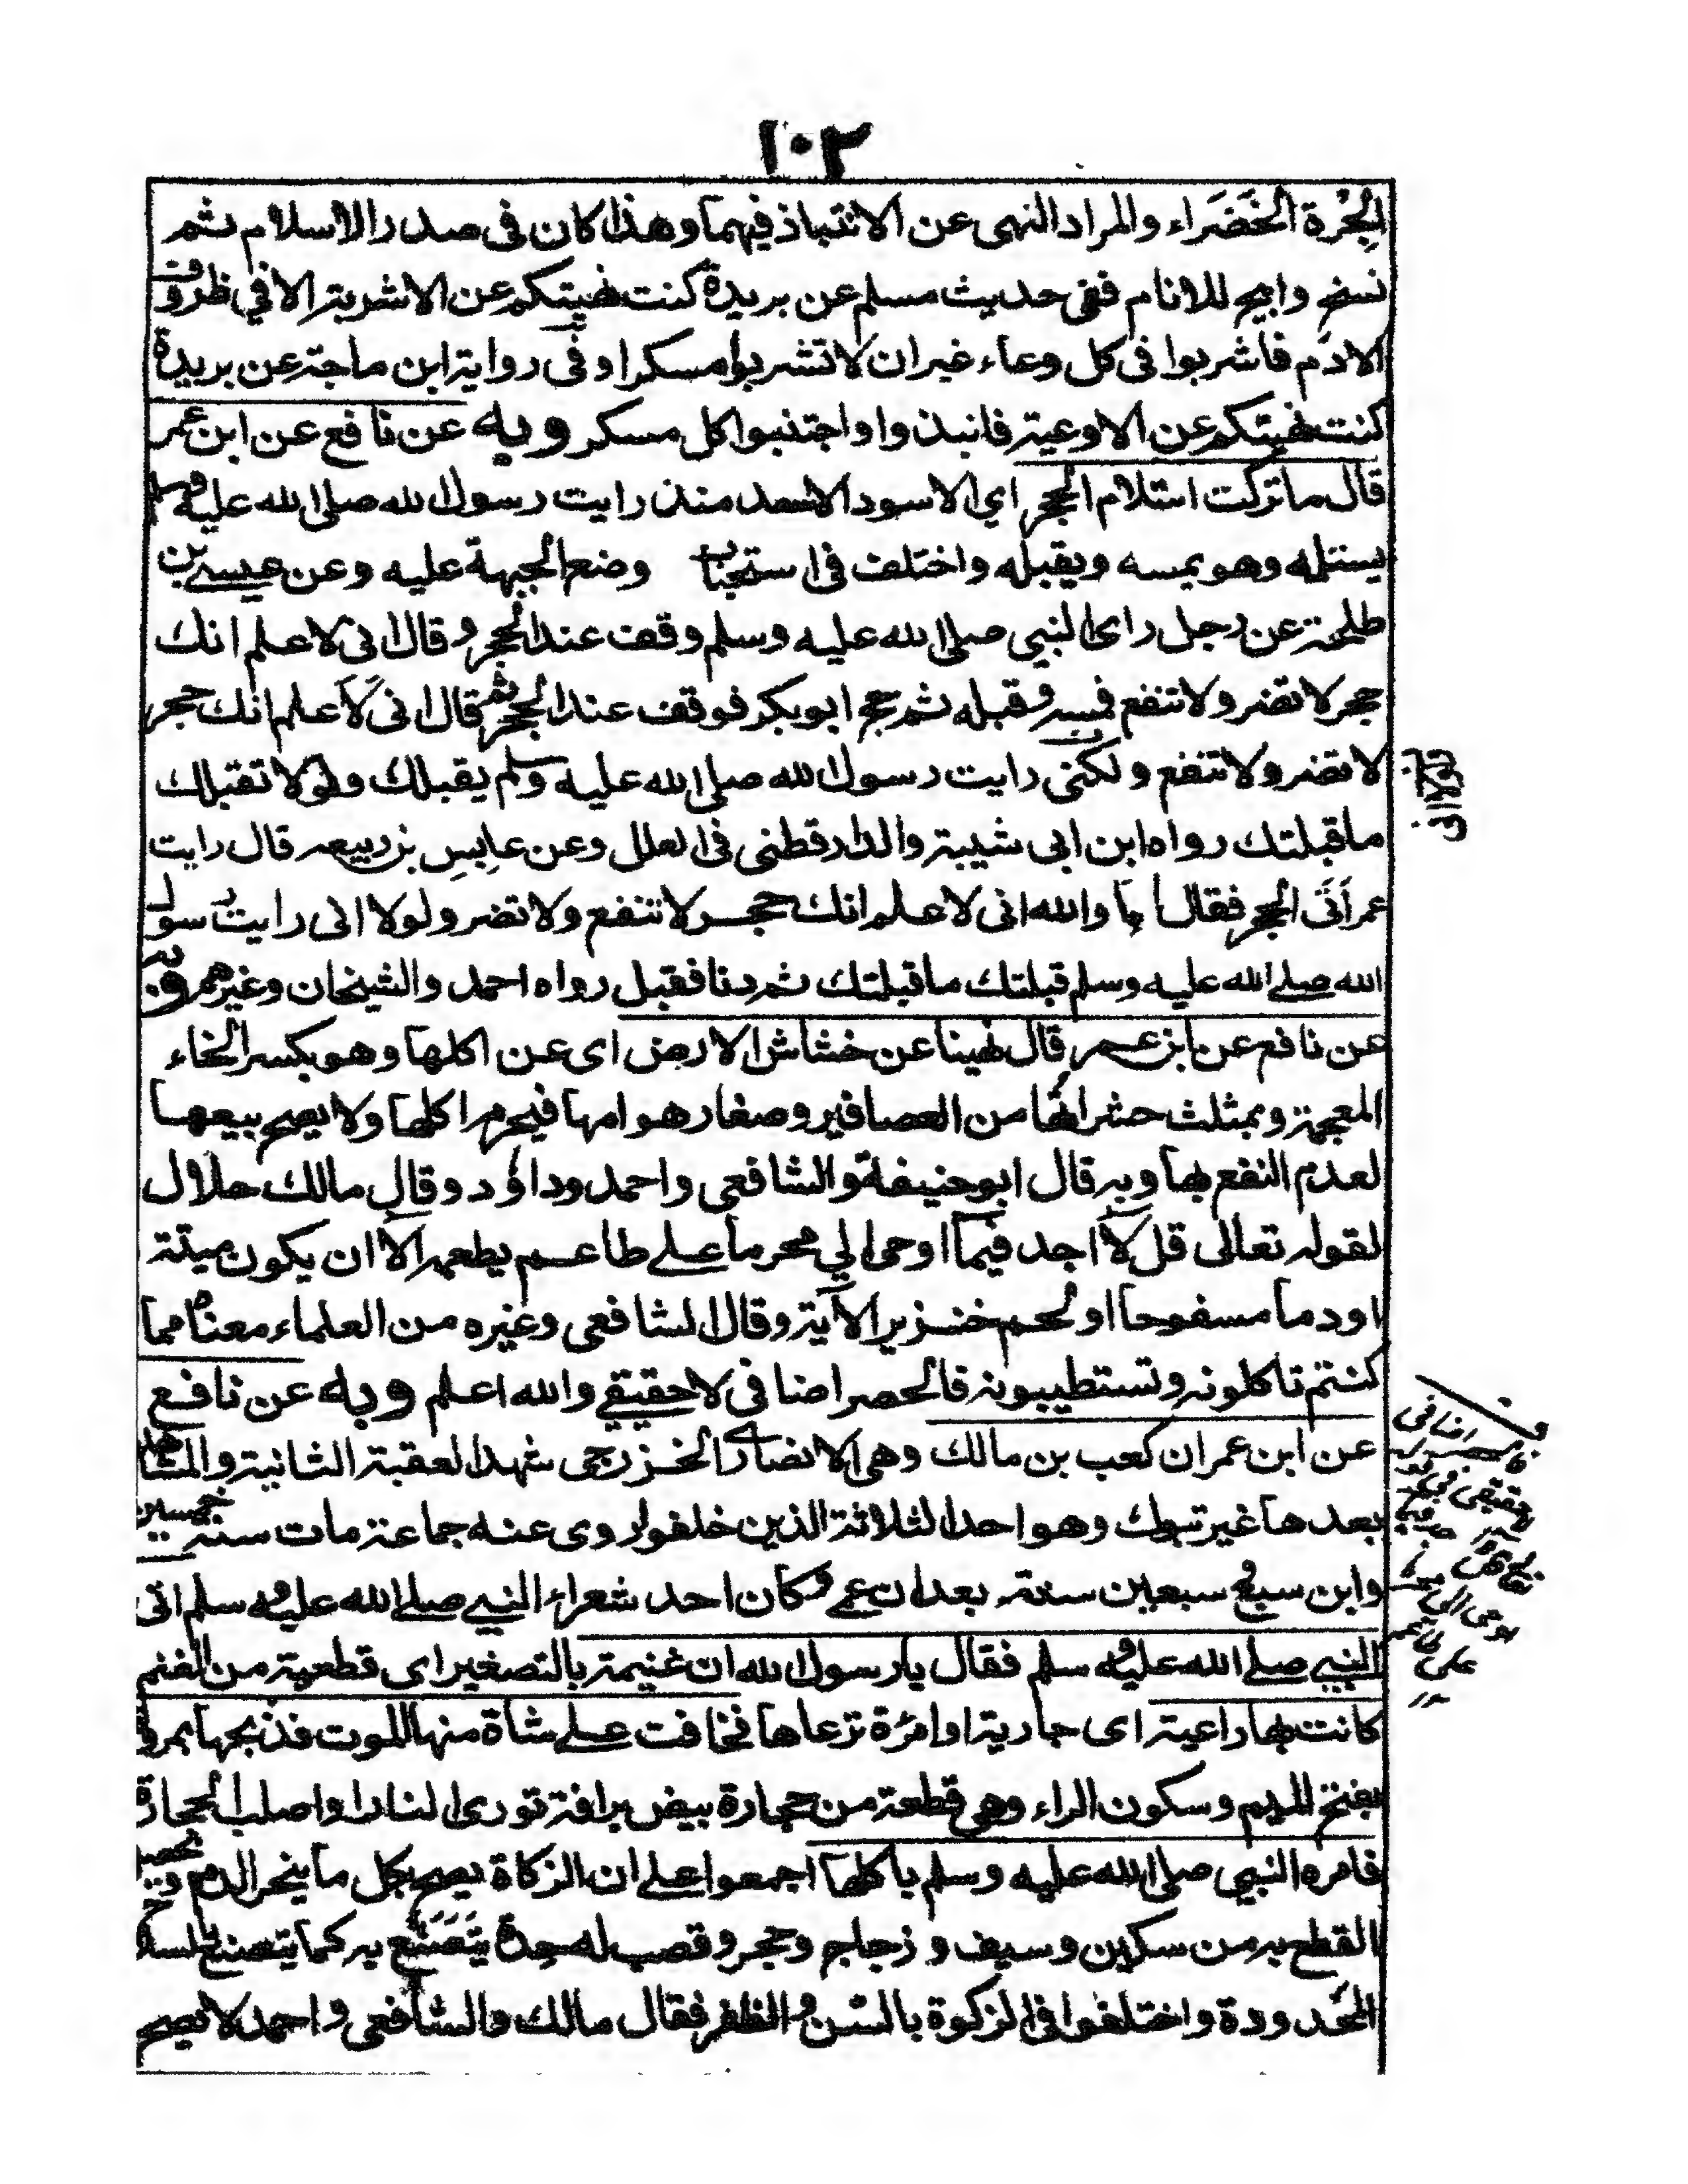 ١٠٣
الجُرة الخَضَراء والمراد النهى عن الانتباذ فيهما وهذا كان فى صدر الاسلام ثم
نسخ وابيح للانام ففى حديث مسلم عن بريدة كنت نهيتكم عن الاشربة الا في ظروف
الادم فاشربوا فى كل وعاء غير ان لا تشربوا مسكرا وفى رواية ابن ماجة عن بريدة
كنت نهيتكم عن الاوعية فانبذوا واجتنبوا كل مسكر وبه عن نافع عن ابن عمر
قال ما تركت استلام الحجر اي الاسود الاسعد منذ رايت رسول الله صلى الله عليه وسلم
يستلمه وهو يمسه ويقبله واختلف فى استحباب وضع الجبهة عليه وعن عيسے بن
طلحة عن رجل راى النبي صلى الله عليه وسلم وقف عند الحجر وقال انى لاعلم انك
حجر لا تضر ولا تنفع فمسه وقبله ثم حج ابو بكر فوقف عند الحجر ثم قال انى لاَعلم انك حجر
لا تضر ولا تنفع ولكنى رايت رسول الله صلى الله عليه وسلم يقبلك ولولا تقبلك
ما قبلتك رواه ابن ابى شيبة والدارقطنى فى العلل وعن عابِسِ بن ربيعه قال رايت
عمر اَتَى الحجر فقال اما والله انى لاعلم انك حجر لا تنفع ولا تضر ولولا انى رايت رسول
الله صلے الله عليه وسلم قبلتك ما قبلتك ثم دنا فقبل رواه احمد والشيخان وغيرهم وبه
عن نافع عن ابن عمر قال نهينا عن خشاش الارض اى عن اكلها وهو بكسر الخاء
المعجمة وبمثلث حشراتها من العصافير وصغار هوامها فيحرم اكلها ولا يصح بيعها
لعدم النفع بها وبه قال ابو حنيفة والشافعى واحمد وداؤد وقال مالك حلال
لقوله تعالى قل لا اجد فيما اوحى الي محرما علے طاعم يطعمه الا ان يكون ميتة
او دما مسفوحا او لحم خنزير الآية وقال الشافعى وغيره من العلماء معناه مما
كنتم تاكلونه وتستطيبونه فالحصر اضافى لا حقيقے والله اعلم وبه عن نافع
عن ابن عمر ان كعب بن مالك وهى الانصارے الخزرجى شهد العقبة الثانية والمشاهد
بعدها غير تبوك وهو احد الثلاثة الذين خلفوا روى عنه جماعة مات سنة خمسين
وابن سبع سبعين سنة بعد ان عمى وكان احد شعراء النبي صلے الله عليه وسلم اتى
النبي صلے الله عليه وسلم فقال يا رسول الله ان غنيمة بالتصغير اى قطعية من الغنم
كانت بها راعية اى جارية او امرٔة ترعاها فخافت علے شاة منها الموت فذبحها بمروة
بفتح الميم وسكون الراء وهى قطعة من حجارة بيض براقة تورى النار او اصلب الحجارة
فامره النبي صلى الله عليه وسلم باكلها اجمعوا علے ان الزكاة يصح بكل ما ينحر الدم ويحصل
القطع به من سكين وسيف وزجاج وحجر وقصب له حدة يَتَصَنَّع به كما يتصنع
المحدودة واختلفوا فى الزكوة بالسن والظفر فقال مالك والشافعى واحمد لا يصح
لولا انى
اضافى
حقيقى